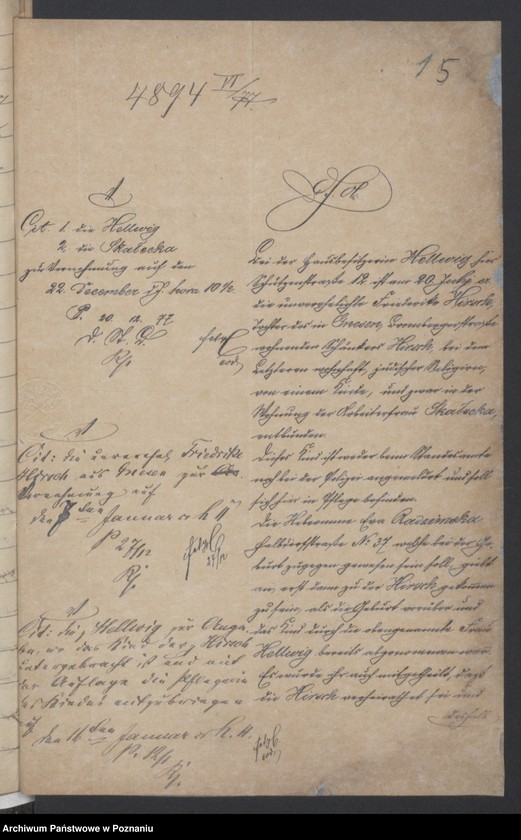 15
4894 VI/77.
Cit. 1. die Hellwig
2. die Skalecka
zur Vernehmung auf den
22. December cr. hora 10 ½
P. 20. 12. 77
d. St. A.
Cit: die unverehel. Friedrike
Hirsch aus Gnesen zur
Vernehmung auf
den 7 ten Januar cr h 11
P 27/12
Cit: die Hellwig zur Anga-
be, wo das Kind der Hirsch
untergebracht ist und mit
der Auflage die Pflegerin
des Kindes mitzubringen
auf
den 16 ten Januar cr h. 11.
P. 12/1
Bei der Hausbesitzerin Hellwig hier
Schützenstraße 12. ist am 20. cr.
die unverehelichte Friederike Hirsch,
Tochter des in Gnesen, Brombergerstraße
wohnenden Schänkers Hirsch, bei dem
Letzteren wohnhaft, jüdischer Religion,
von einem Kinde, und zwar in der
Wohnung der Arbeiterfrau Skalecka,
entbunden.
Dieses Kind ist weder beim Standesamte
noch bei der Polizei angemeldet und soll
sich hier in Pflege befinden.
Die Hebeamme Eva Radzimska
Halbdorfstraße No. 37 welche bei der Ge-
burt zugegen gewesen sein soll, giebt
an, erst dann zu der Hirsch gekommen
zu sein, als die Geburt vorüber und
das Kind durch die obengenannte Frau
Hellwig bereits abgenommen war.
Es wurde ihr auch mitgetheilt, daß
die Hirsch verheirathet sei und
deshalb
Archiwum Państwowe w Poznaniu